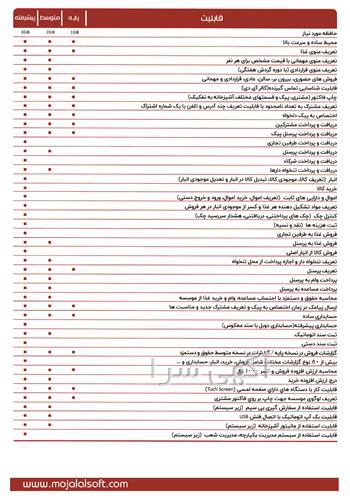 قابلیت پایه متوسط پیشرفته
حافظه مورد نیاز 1GB 2GB 3GB
محیط ساده و سرعت بالا
تعریف منوی غذا
تعریف منوی مهمانی با قیمت مشخص برای هر نفر
تعریف منوی قراردادی (با دوره گردش هفتگی)
فروش های حضوری، بیرون بر، سالن، عادی، قراردادی و مهمانی
قابلیت شناسایی تماس گیرنده(کالر آی دی)
چاپ فاکتور (مشتری، پیک و قسمتهای مختلف آشپزخانه به تفکیک)
تعریف مشترک به تعداد نامحدود با قابلیت تعریف چند آدرس و تلفن با یک شماره اشتراک
اختصاص به پیک دلخواه
دریافت و پرداخت مشترکین
دریافت و پرداخت پرسنل پیک
دریافت و پرداخت طرفین تجاری
دریافت و پرداخت پرسنل
دریافت و پرداخت شرکاء
دریافت و پرداخت تنخواه دارها
انبار (تعریف کالا، موجودی کالا، تبدیل کالا در انبار و تعدیل موجودی انبار)
خرید کالا
اموال و دارایی های ثابت (تعریف اموال، خرید اموال، ورود و خروج دستی)
تعریف مواد تشکیل دهنده هر غذا و کسر از موجودی انبار در هر فروش
کنترل چک (چک های پرداختنی، دریافتنی، هشدار سررسید چک)
ثبت هزینه ها (نقد و نسیه)
فروش غذا به طرفین تجاری
فروش غذا به پرسنل
فروش کالا از انبار اصلی
تعریف تنخواه دار و اجازه پرداخت از محل تنخواه
تعریف پرسنل
پرداخت وام به پرسنل
پرداخت مساعده به پرسنل
محاسبه حقوق و دستمزد با احتساب مساعده، وام و خرید غذا از موسسه
ارسال پیامک در زمان اختصاص به پیک و تعریف مشترک جدید و مناسبت ها
حسابداری ساده
حسابداری پیشرفته(حسابداری دوبل با سند معکوس)
ثبت سند اتوماتیک
ثبت سند دستی
گزارشات فروش در نسخه پایه / گزارشات در نسخه متوسط حقوق و دستمزد
بیش از ۹۰ نوع گزارشات مختلف شامل فروش، خرید، انبار، حسابداری و ...
محاسبه ارزش افزوده فروش و کسر ۱۰۰۰ ریال
درج ارزش افزوده خرید
قابلیت کار با دستگاه های دارای صفحه لمسی (Tuch Screen)
تعریف لوگوی موسسه جهت چاپ بر روی فاکتور مشتری
قابلیت استفاده از سفارش گیری بی سیم (زیر سیستم)
قابلیت بک آپ اتوماتیک با اتصال فلش USB
قابلیت استفاده از مانیتور آشپزخانه (زیر سیستم)
قابلیت استفاده از سیستم مدیریت یکپارچه، مدیریت شعب (زیر سیستم)
www.mojalalsoft.com